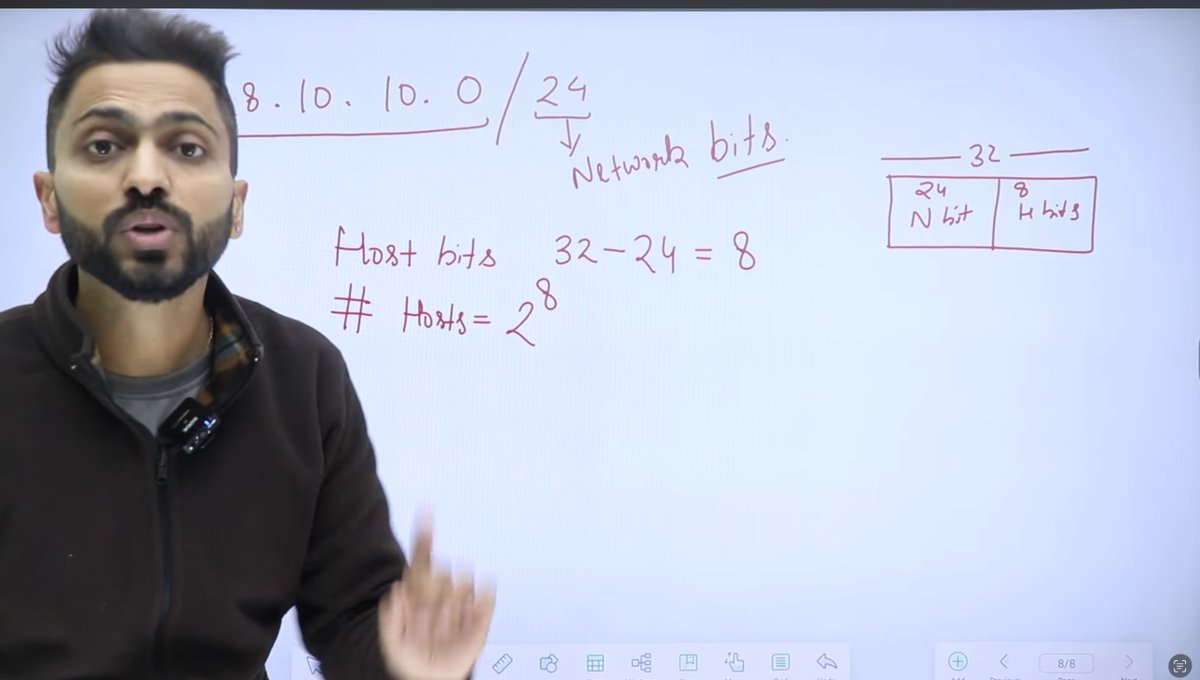 8 . 10 . 10 . 0 / 24
Network bits.
32
24 8
N bit H bits
Host bits 32 - 24 = 8
# Hosts = 2⁸
8/8